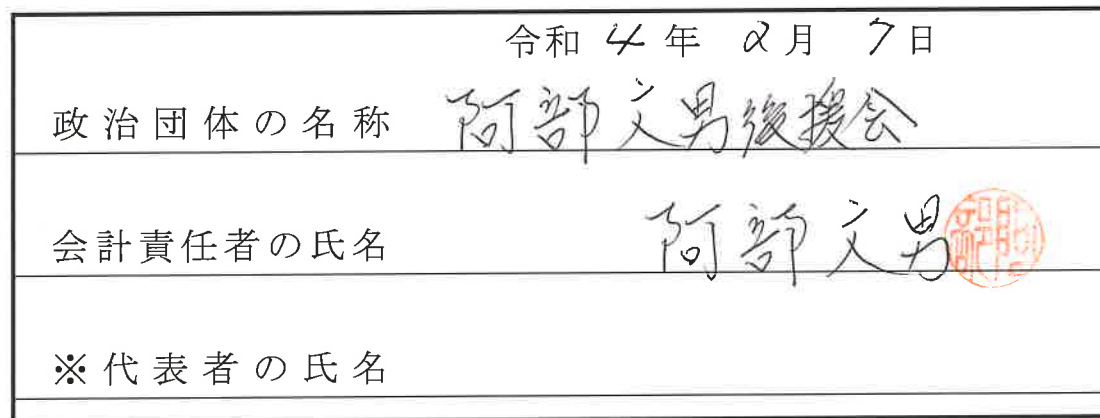 令和 4 年 2 月 7 日
政治団体の名称 阿部文男後援会
会計責任者の氏名 阿部文男
※代表者の氏名